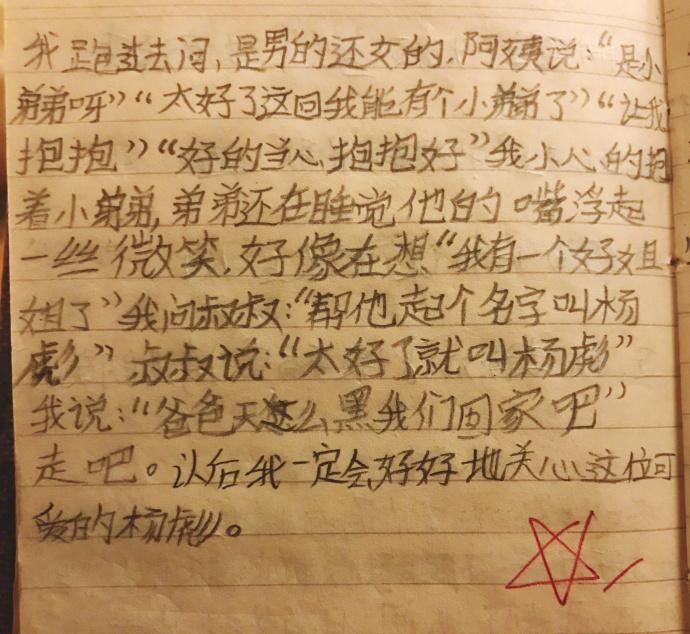 我跑过去问，是男的还女的，阿姨说：“是小
弟弟呀”“太好了这回我能有个小弟弟了”“让我
抱抱”“好的当心抱抱好”我小心的抱
着小弟弟，弟弟还在睡觉他的嘴浮起
一丝微笑，好像在想“我有一个好姐
姐了”我问叔叔：“帮他起个名字叫杨
彪”叔叔说：“太好了就叫杨彪”
我说：“爸爸天这么黑我们回家吧”
走吧。以后我一定会好好地关心这位可
爱的杨彪。